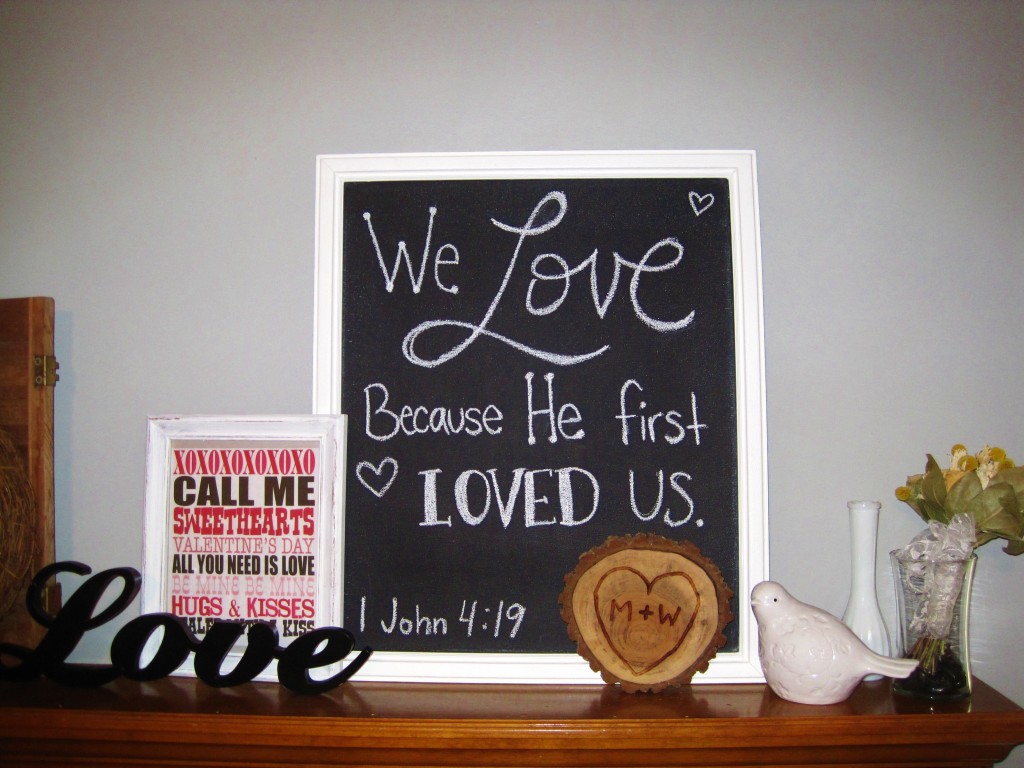 We Love
Because He first
LOVED US.
1 John 4:19
XOXOXOXOXOXO
CALL ME
SWEETHEARTS
VALENTINE'S DAY
ALL YOU NEED IS LOVE
BE MINE BE MINE
HUGS & KISSES
KISS
Love
M+W